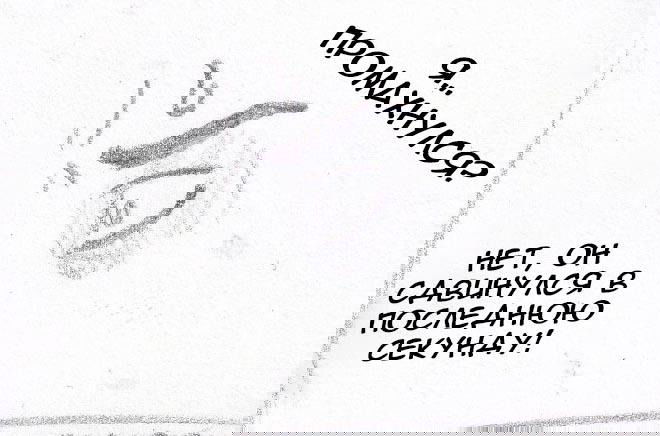 Я...
ПРОМАХНУЛСЯ?
НЕТ, ОН
СДВИНУЛСЯ В
ПОСЛЕДНЮЮ
СЕКУНДУ!